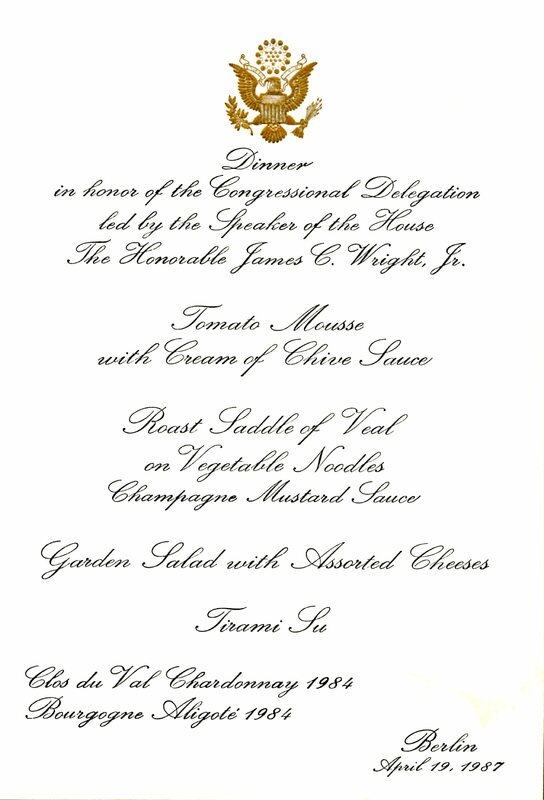 Dinner
in honor of the Congressional Delegation
led by the Speaker of the House
The Honorable James C. Wright, Jr.
Tomato Mousse
with Cream of Chive Sauce
Roast Saddle of Veal
on Vegetable Noodles
Champagne Mustard Sauce
Garden Salad with Assorted Cheeses
Tirami Su
Clos du Val Chardonnay 1984
Bourgogne Aligoté 1984
Berlin
April 19, 1987